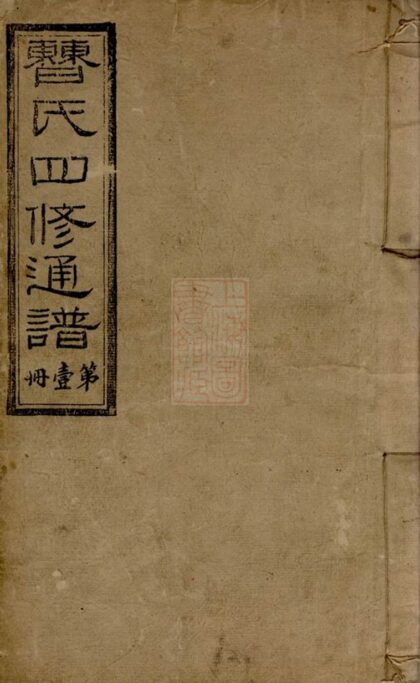 曹氏四修通譜
第壹冊
上海圖
書館藏